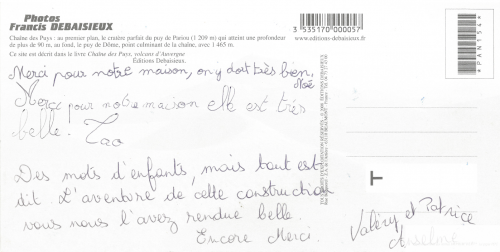 Photos
Francis DEBAISIEUX
Chaîne des Puys : au premier plan, le cratère parfait du puy de Pariou (1 209 m) qui atteint une profondeur
de plus de 90 m, au fond, le puy de Dôme, point culminant de la chaîne, avec 1 465 m.
Ce site est décrit dans le livre Chaîne des Puys, volcans d'Auvergne
Éditions Debaisieux.
3 535170 000057
www.editions-debaisieux.com
*PAN15**
Merci pour notre maison, on y dort très bien.
Noé
Merci pour notre maison elle est très
belle. Tao
Des mots d'enfants, mais tout est
dit. L'aventure de cette construction
vous nous l'avez rendue belle.
Encore Merci.
T
Valéry et Patrice
Anselme